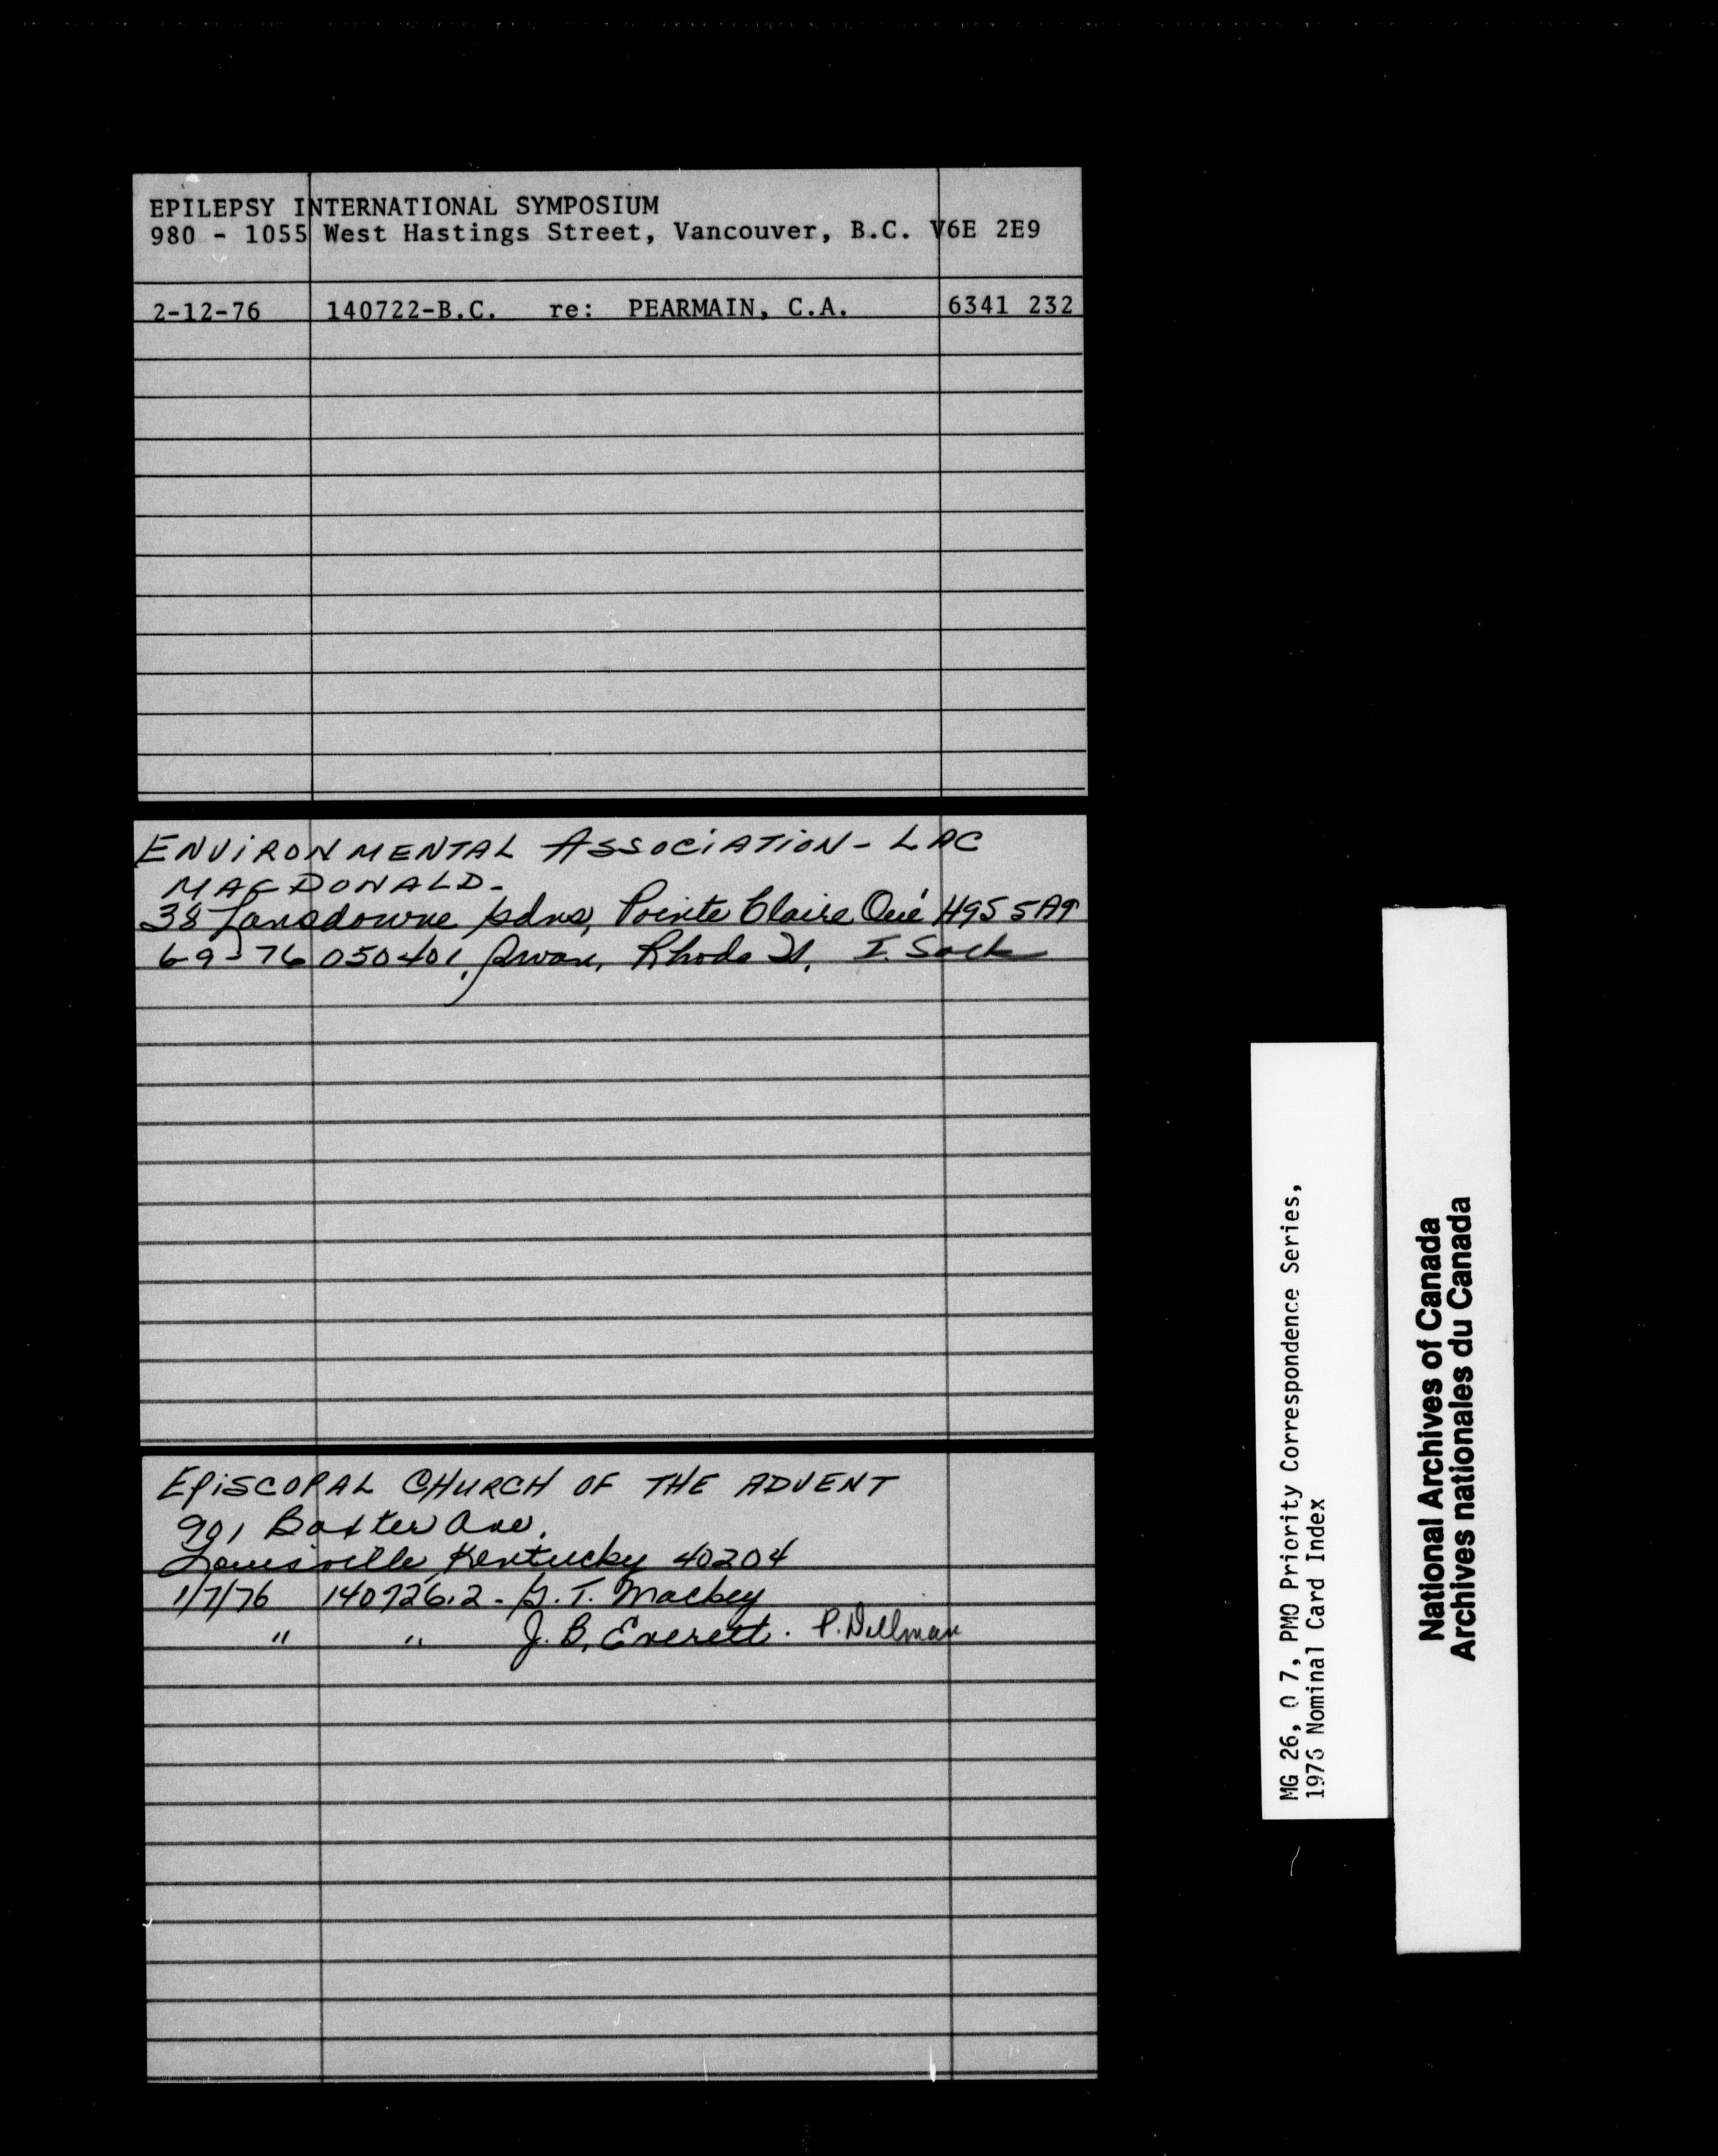 EPILEPSY INTERNATIONAL SYMPOSIUM
980 - 1055 West Hastings Street, Vancouver, B.C. V6E 2E9
2-12-76 140722-B.C. re: PEARMAIN, C.A. 6341 232
ENVIRONMENTAL ASSOCIATION - LAC
MACDONALD-
38 Lansdowne gdns, Pointe Claire Qué H9S 5A9
6-9-76 050401, Swan, Rhoda I. Sack
EPISCOPAL CHURCH OF THE ADVENT
901 Baxter Ave.
Louisville, Kentucky 40204
1/7/76 140726.2 - G. T. Mackey
" " J. B. Everett. P. Dillman
MG 26, O 7, PMO Priority Correspondence Series,
1976 Nominal Card Index
National Archives of Canada
Archives nationales du Canada